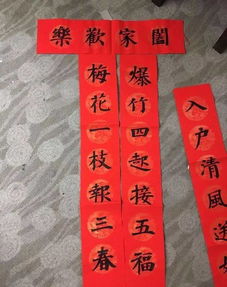 闔家歡樂
爆竹四起接五福
梅花一枝報三春
入户清風送